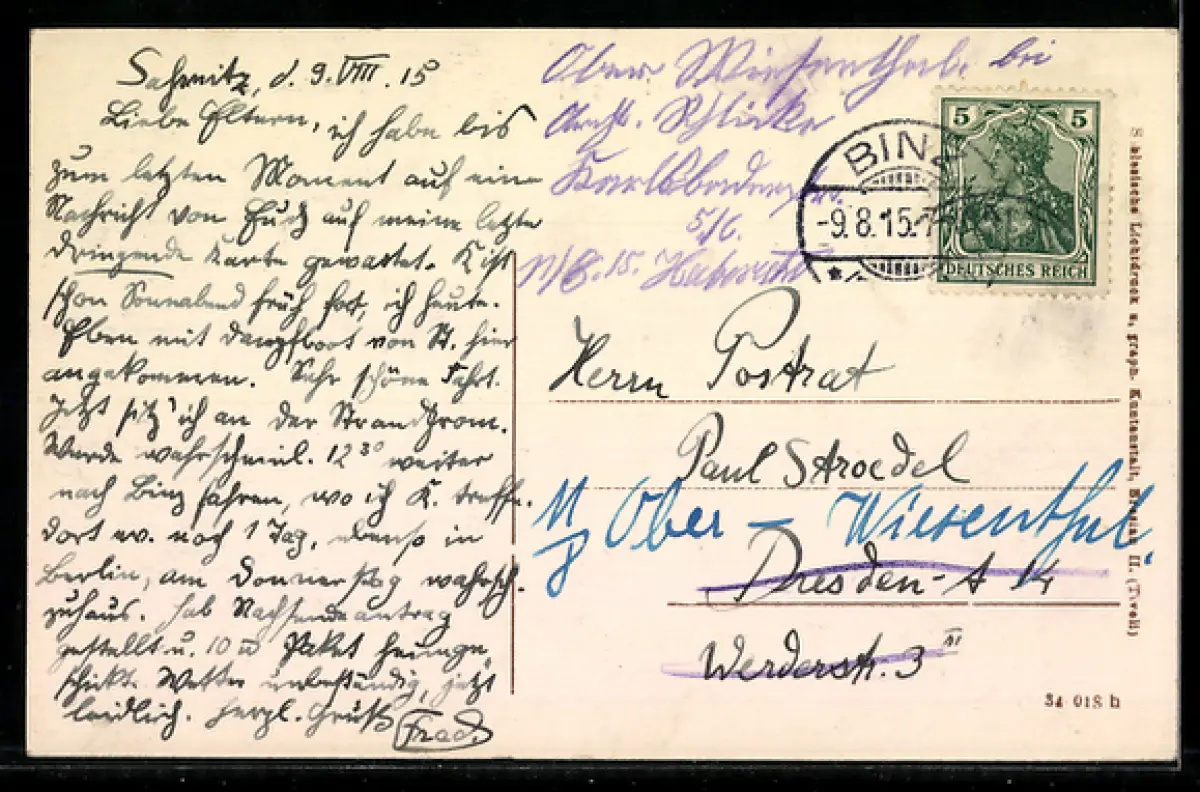 Saßnitz, d. 9. VIII. 15
Liebe Eltern, ich habe bis
zum letzten Moment auf eine
Nachricht von Euch auf meine letzte
dringende Karte gewartet. K. ist
schon Sonnabend früh fort, ich heute.
Eben mit Dampfboot von St. hier
angekommen. Sehr schöne Fahrt.
Jetzt sitz' ich an der Strandprom.
Werde wahrscheinl. 12 30 weiter
nach Binz fahren, wo ich K. treffe.
Dort ev. noch 1 Tag, ebenso in
Berlin, am Donnerstag wahrsch.
zuhaus. Hab Nachsendeantrag
gestellt u. 10 Paket heimge
schickt. Wetter unbeständig, jetzt
leidlich. Herzl. Gruß
Ober Wiesenthal. bei
Schlicke
Karlsbaderstr.
5/C.
11/8. 15.
BINZ
-9.8.15.
5 5
DEUTSCHES REICH
Herrn Postrat
Paul Stroedel
Ober-Wiesenthal.
Dresden-A 14
Werderstr. 3 III
Schlesische Lichtdruck u. graph. Kunstanstalt, Breslau II. (Tivoli)
34 018 h